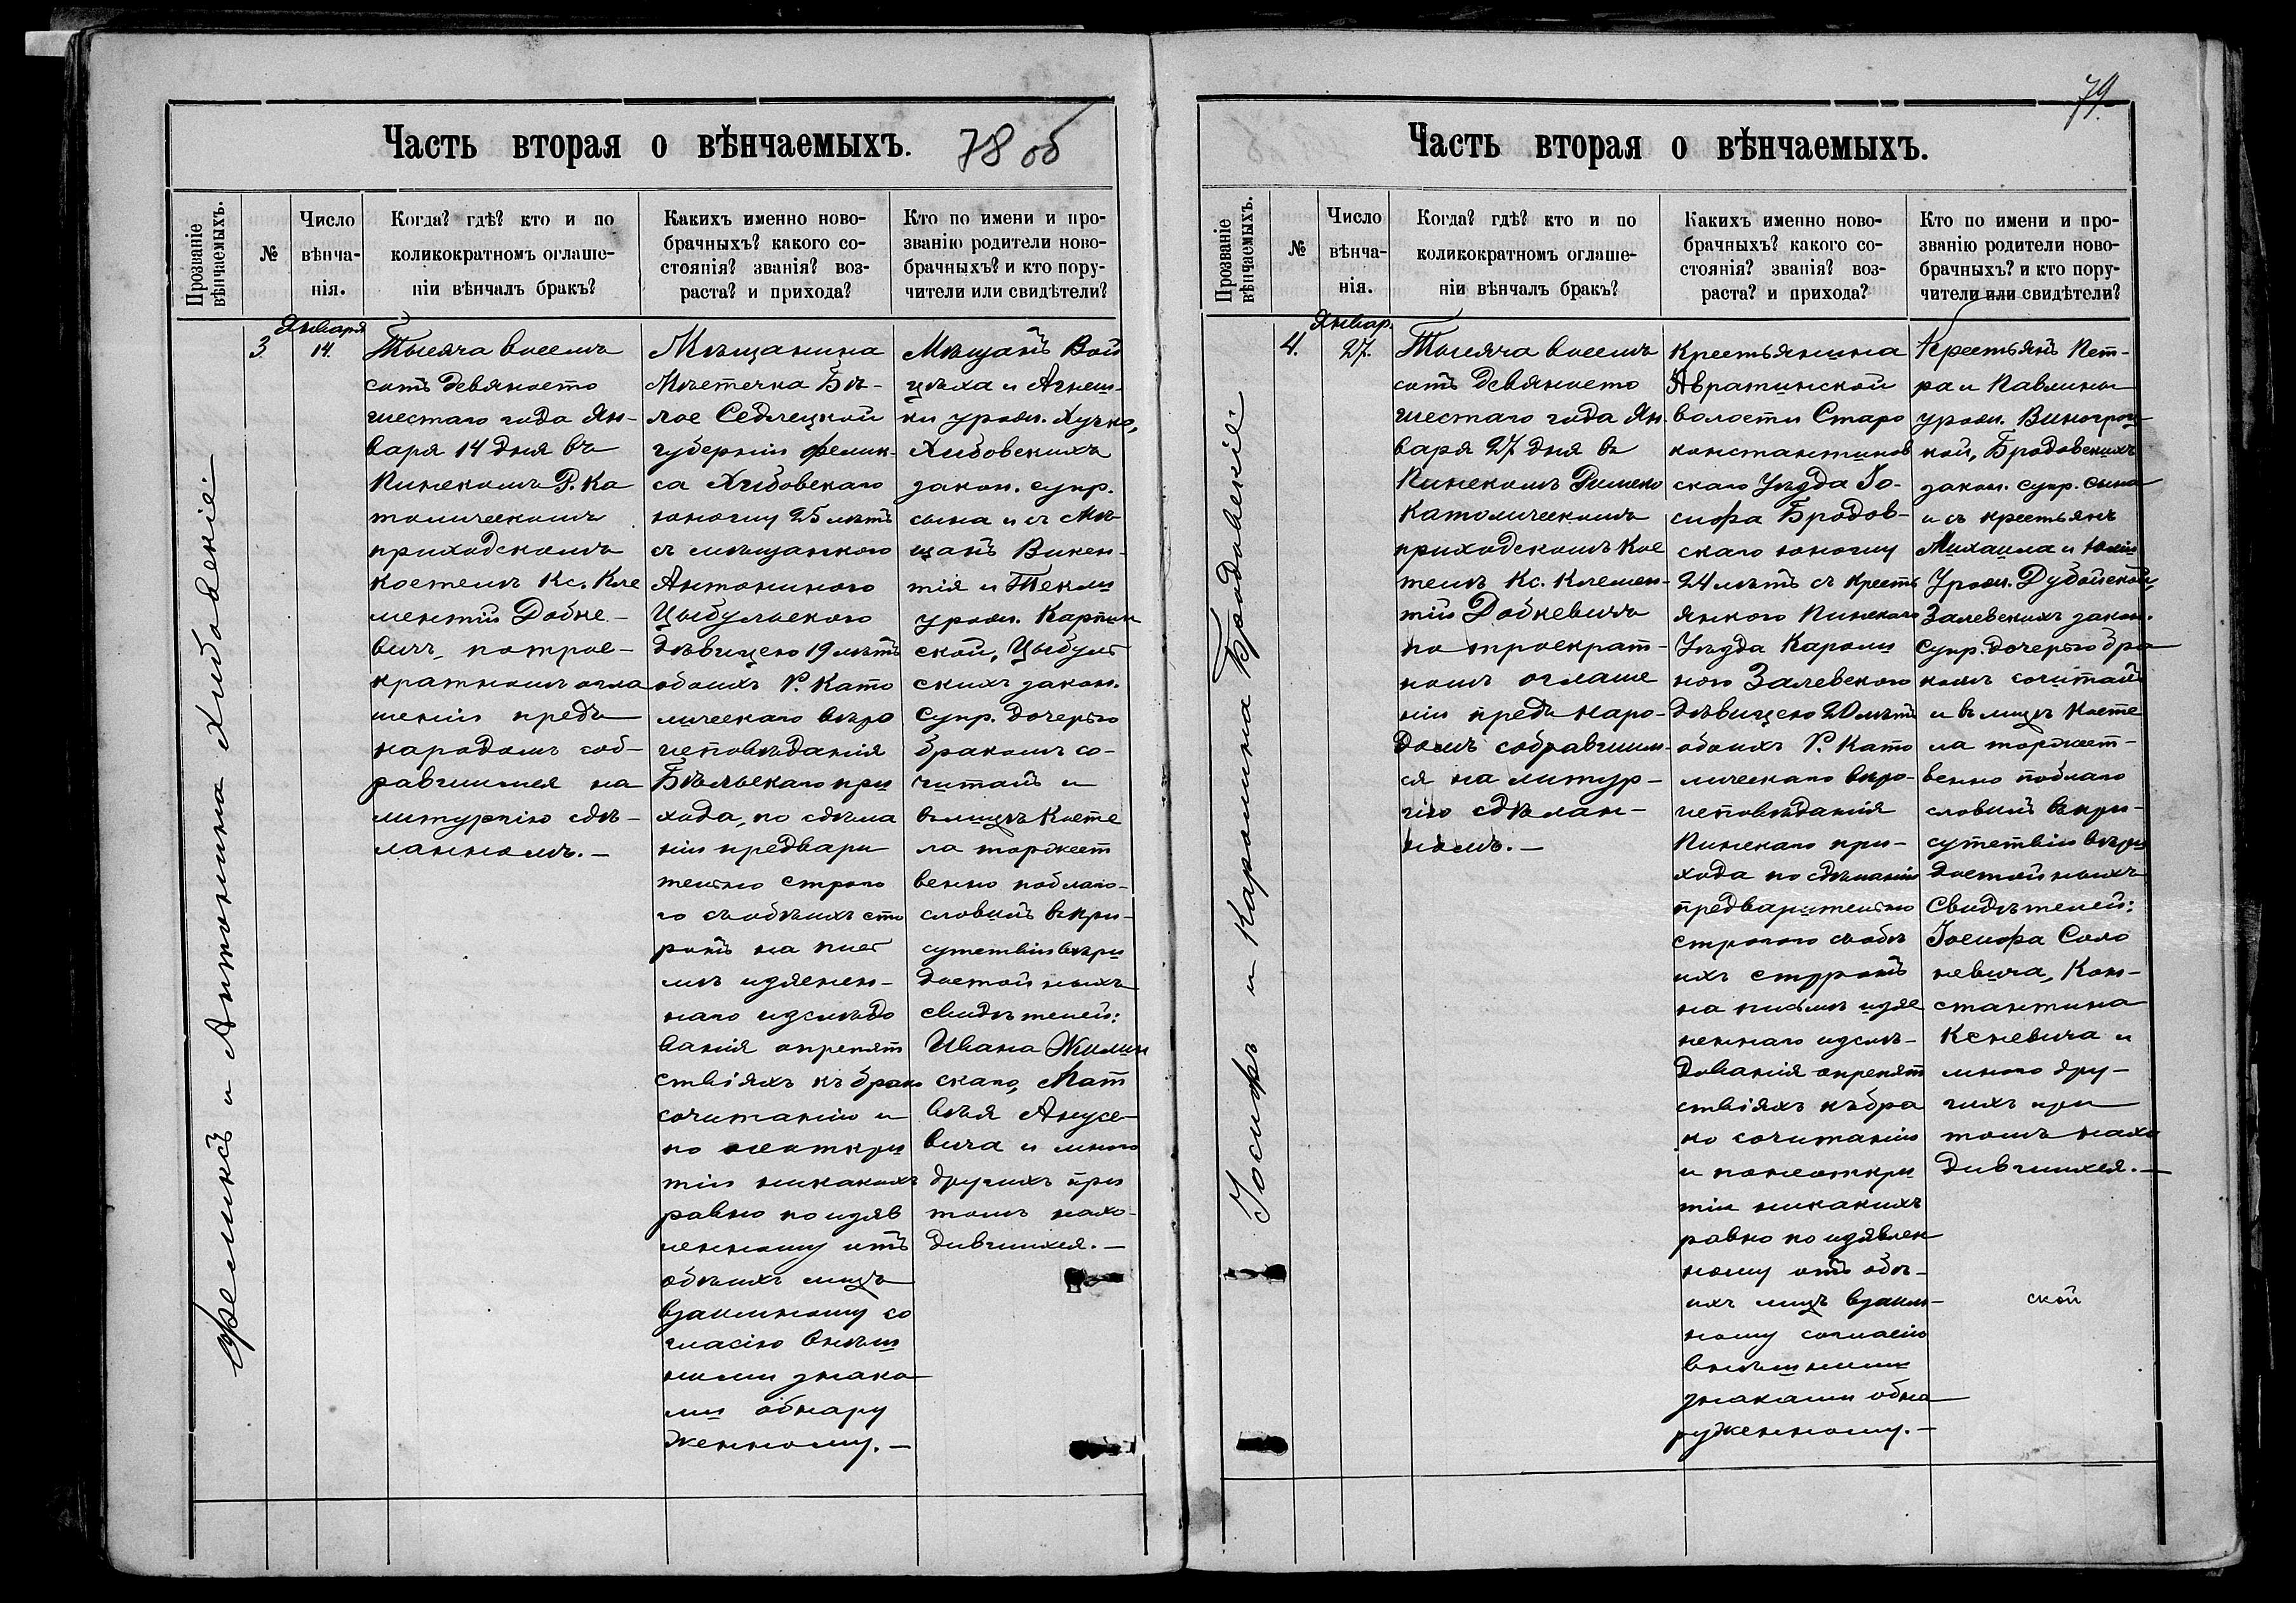 Часть вторая о вѣнчаемыхъ. 78 об
Прозваніе вѣнчаемыхъ.
№
Число
вѣнча-
нія.
Когда? гдѣ? кто и по
коликократномъ оглаше-
ніи вѣнчалъ бракъ?
Какихъ именно ново-
брачныхъ? какого со-
стоянія? званія? воз-
раста? и прихода?
Кто по имени и про-
званію родители ново-
брачныхъ? и кто пору-
чители или свидѣтели?
Феликсъ и Антонина Хибовскіе.
3.
Января
14.
Тысяча восемь
сотъ девяносто
шестаго года Ян-
варя 14 дня въ
Пинскомъ Р. Ка
толическомъ
приходскомъ
костелѣ Кс. Кле
ментій Добке-
вичъ, по трое-
кратномъ огла
шеніи предъ
народомъ соб-
равшимся на
литургію сдѣ-
ланномъ. —
Мѣщанина
Мѣстечка Бѣ-
лое Седлецкой
губерніи Фелик-
са Хибовскаго
юношу 25 лѣтъ
съ мѣщанкою
Антониною
Цыбульскою
дѣвицею 19 лѣтъ
обоихъ Р. Като
лическаго вѣро
исповѣданія
Бѣльскаго при
хода, по сдѣла
ніи предвари
тельно строго
го съ обѣихъ сто
ронъ на пись
мѣ изяснен-
наго изслѣдо
ванія о препят
ствіяхъ къ брако
сочитанію и
по неоткры
тіи никакихъ
равно по изяв
ленному отъ
обѣихъ лицъ
взаимному со
гласію внѣш
ними знака
ми обнару
женному. —
Мѣщанъ Вой
цѣха и Агнеш-
ки урожд. Хучко,
Хибовскихъ
закон. супр.
сына и съ Мѣ
щанъ Викен-
тія и Теклы
урожд. Карпин
ской, Цыбуль
скихъ закон.
супр. дочерью
бракомъ со-
читалъ и
въ лицѣ Косте
ла торжест
венно поблаго-
словилъ въ при-
сутствіи вѣри
достойныхъ
свидѣтелей:
Ивана Жилин
скаго, Мат
вѣя Анусе-
вича и много
другихъ при
томъ нахо-
дившихся. —
79.
Часть вторая о вѣнчаемыхъ.
Прозваніе вѣнчаемыхъ.
№
Число
вѣнча-
нія.
Когда? гдѣ? кто и по
коликократномъ оглаше-
ніи вѣнчалъ бракъ?
Какихъ именно ново-
брачныхъ? какого со-
стоянія? званія? воз-
раста? и прихода?
Кто по имени и про-
званію родители ново-
брачныхъ? и кто пору-
чители или свидѣтели?
Іосифъ и Каролина Бродовскіе.
4.
Январ.
27.
Тысяча восемь
сотъ девяносто
шестаго года Ян
варя 27 дня въ
Пинскомъ Римско
Католическомъ
приходскомъ Кос
телѣ Кс. Клемен-
тій Добкевичъ
по троекрат-
номъ оглаше
ніи предъ наро-
домъ собравшим-
ся на литур-
гію сдѣлан-
номъ. —
Крестьянина
Авратинской
волости Старо
константинов
скаго Уѣзда Іо-
сифа Бродов-
скаго юношу
24 лѣтъ съ кресть
янкою Пинскаго
Уѣзда Кароли
ною Залевскою
дѣвицею 20 лѣтъ
обоихъ Р. Като
лическаго вѣро-
исповѣданія
Пинскаго при-
хода по сдѣланіи
предварительно
строгого съ обѣ
ихъ сторонъ
на письмѣ изяс
неннаго изслѣ-
дованія о препят
ствіяхъ къ бра
ко сочитанію
и по неоткры
тіи никакихъ
равно по изявлен
ному отъ обѣ-
ихъ лицъ взаим-
ному согласію
внѣшними
знаками обна
руженному. —
Крестьянъ Пет-
ра и Павлины
урожд. Виногрод
кой, Бродовскихъ
закон. супр. сына
и съ крестьянъ
Михаила и Юліи
урожд. Дубойской,
Залевскихъ закон.
супр. дочерью бра
комъ сочиталъ
и въ лицѣ Косте
ла торжест-
венно поблаго
словилъ въ при-
сутствіи вѣри
достойныхъ
свидѣтелей:
Іосифа Соло
невича, Кон-
стантина
Кеневича и
много дру-
гихъ при
томъ нахо
дившихся. —
ской